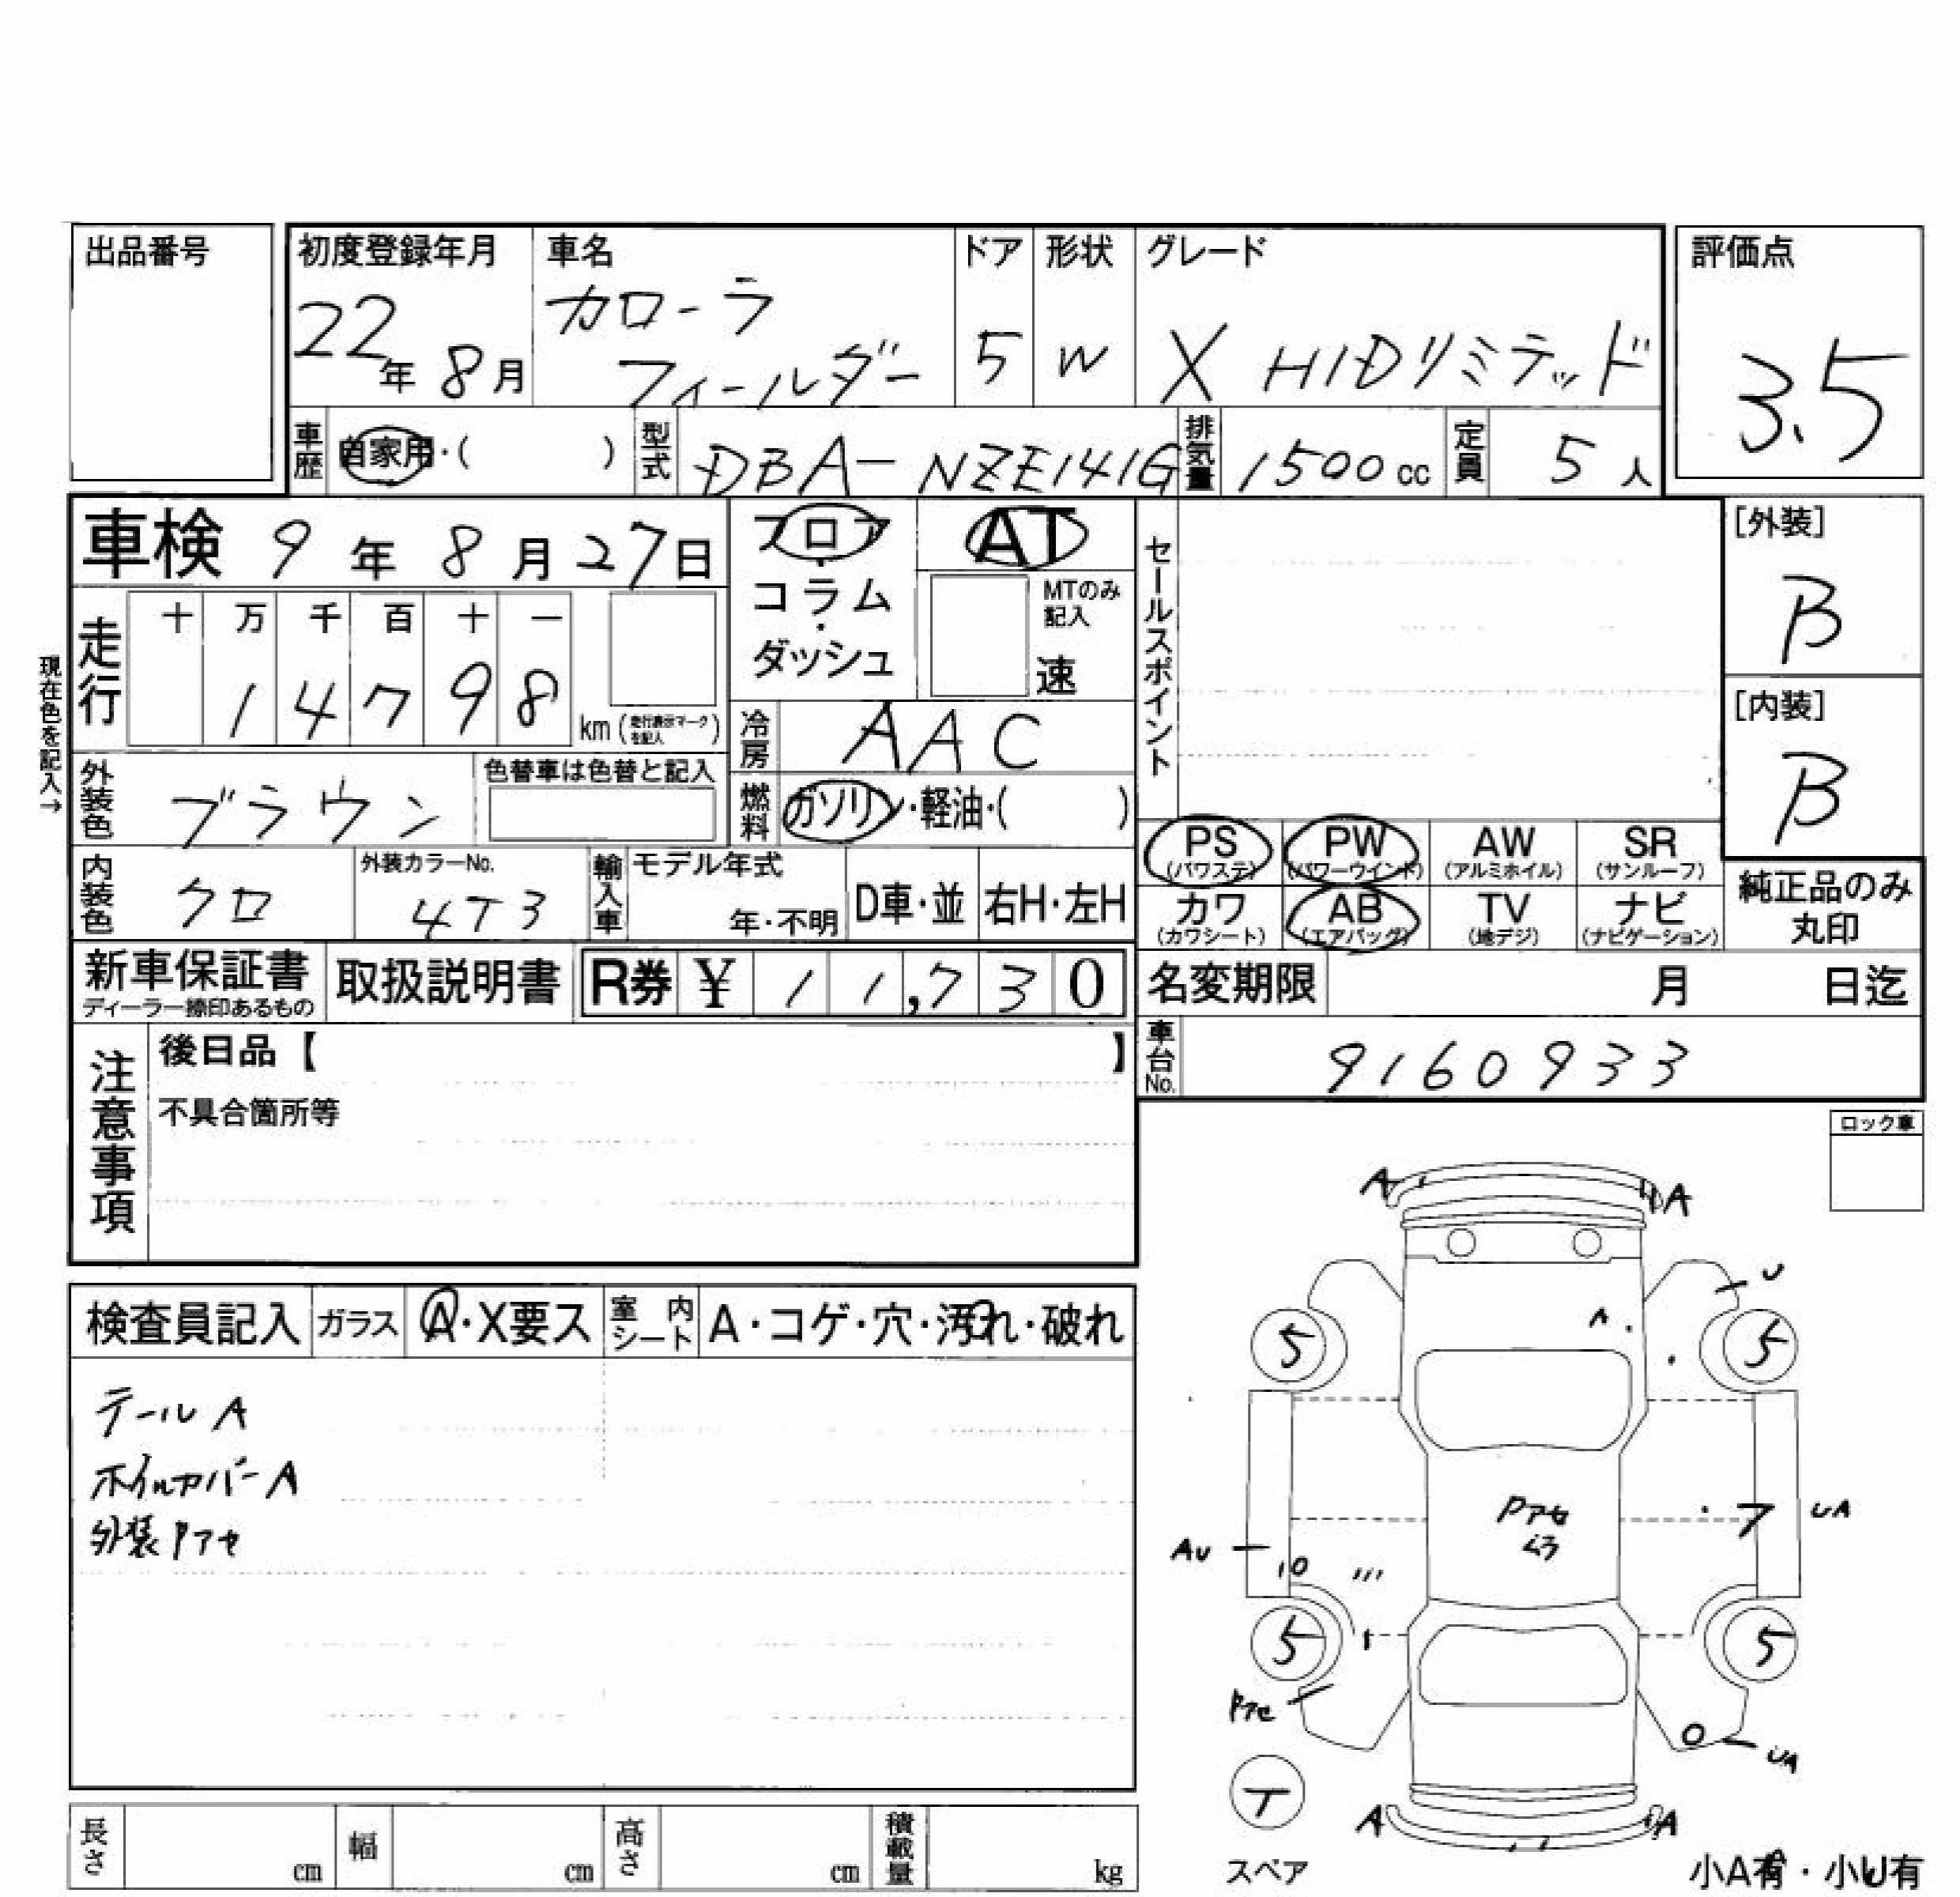 出品番号
初度登録年月
22年 8月
車名
カローラ
フィールダー
ドア
5
形状
W
グレード
X HIDリミテッド
評価点
3.5
車歴 自家用・( )
型式 DBA-NZE141G
排気量 1500cc
定員 5人
車検 9年 8月27日
フロア・コラム・ダッシュ
AT
MTのみ記入
速
セールスポイント
[外装]
B
現在色を記入→
走行
十 万 千 百 十 一
1 4 7 9 8
km (走行表示マークを記入)
冷房 AAC
[内装]
B
外装色 ブラウン
色替車は色替と記入
燃料 ガソリン・軽油・( )
PS (パワステ)
PW (パワーウインド)
AW (アルミホイル)
SR (サンルーフ)
内装色 クロ
外装カラーNo.
4T3
輸入車
モデル年式
年・不明
D車・並
右H・左H
カワ (カワシート)
AB (エアバッグ)
TV (地デジ)
ナビ (ナビゲーション)
純正品のみ
丸印
新車保証書
ディーラー捺印あるもの
取扱説明書
R券 ¥ 1 1,7 3 0
名変期限 月 日迄
車台No. 9160933
注意事項
後日品【 】
不具合箇所等
ロック車
検査員記入
ガラス
A・X要ス
室内シート
A・コゲ・穴・汚れ・破れ
テールA
ホイルカバーA
外装Pアセ
A
A
U
5
5
Pアセ
UA
AU
5
5
Pアセ
UA
T
スペア
A
A
長さ cm
幅 cm
高さ cm
積載量 kg
小A有・小U有